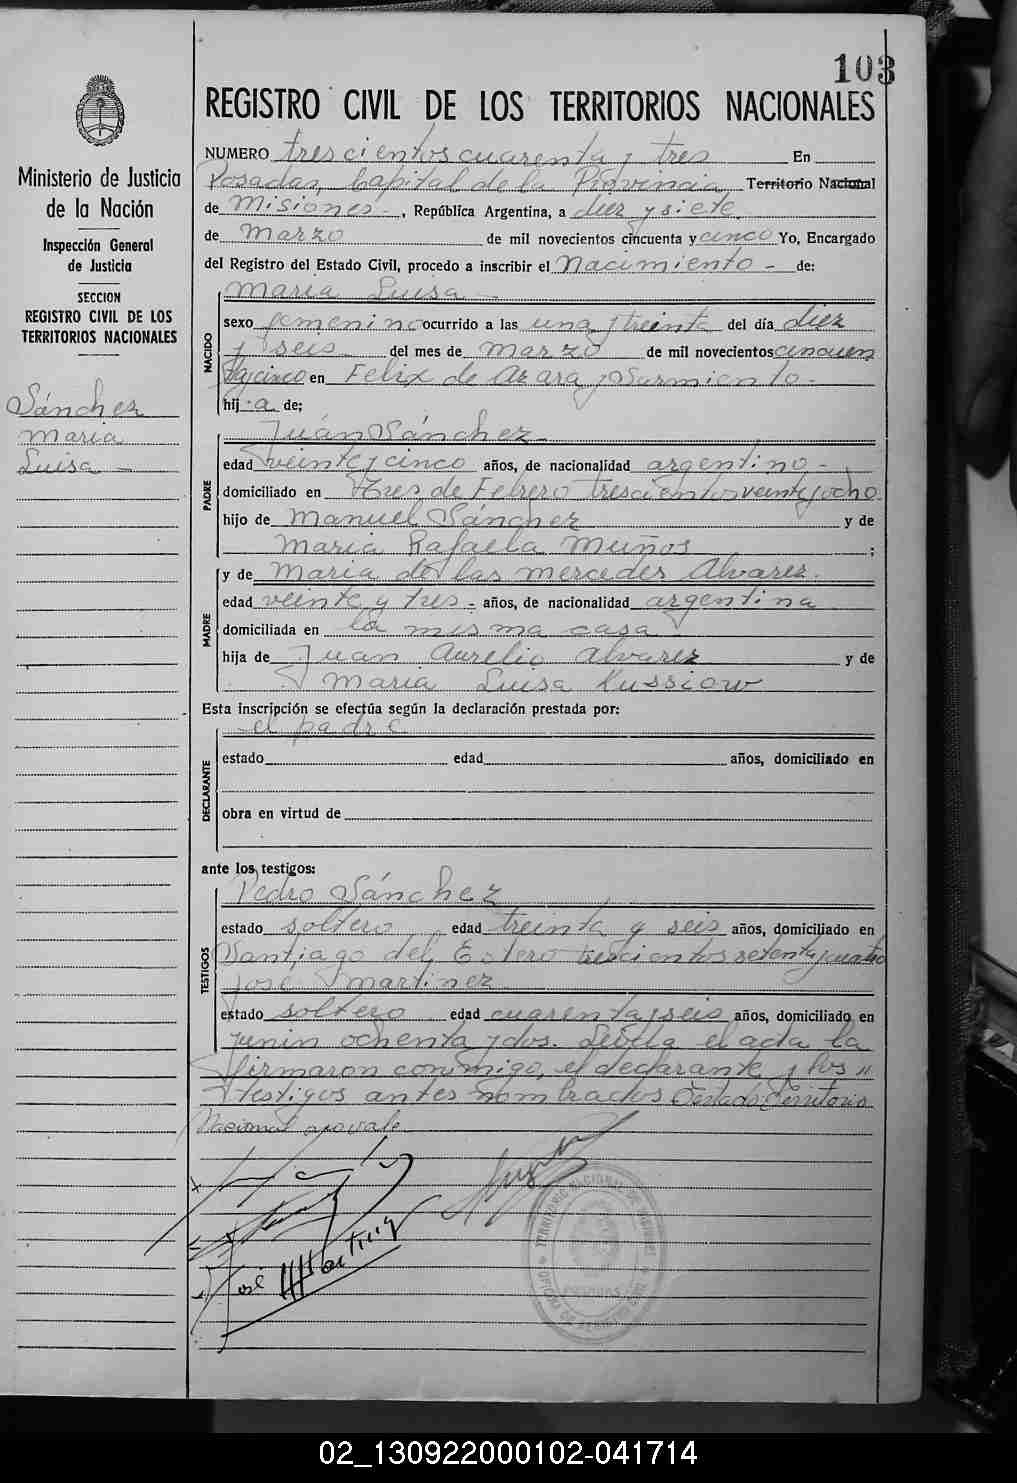 103
REGISTRO CIVIL DE LOS TERRITORIOS NACIONALES
Ministerio de Justicia
de la Nación
Inspección General
de Justicia
SECCION
REGISTRO CIVIL DE LOS
TERRITORIOS NACIONALES
Sánchez
Maria
Luisa -
NUMERO trescientos cuarenta y tres En
Posadas, Capital de la Provincia Territorio Nacional
de Misiones -, República Argentina, a diez y siete
de Marzo de mil novecientos cincuenta y cinco Yo, Encargado
del Registro del Estado Civil, procedo a inscribir el Nacimiento - de:
NACIDO
Maria Luisa -
sexo femenino ocurrido a las una y treinta del día diez
y seis del mes de Marzo de mil novecientos cincuen
ta y cinco en Felix de Azara y Sarmiento -
hij a de;
PADRE
Juán Sánchez
edad veinte y cinco años, de nacionalidad argentino -
domiciliado en Tres de Febrero trescientos veinte y ocho
hijo de Manuel Sánchez y de
Maria Rafaela Muños ;
MADRE
y de Maria de las Mercedes Alvarez.
edad veinte y tres - años, de nacionalidad argentina
domiciliada en la misma casa
hija de Juan Aurelio Alvarez y de
Maria Luisa Kussiow
Esta inscripción se efectúa según la declaración prestada por:
DECLARANTE
el padre
estado edad años, domiciliado en
obra en virtud de
ante los testigos:
TESTIGOS
Pedro Sánchez
estado soltero edad treinta y seis años, domiciliado en
Santiago del Estero trescientos setenta y cuatro
José Martinez
estado soltero edad cuarenta y seis años, domiciliado en
Junin ochenta y dos. Leída el acta la
firmaron conmigo, el declarante y los
testigos antes nombrados Testado: Territorio
Nacional no vale
José Martinez
02_130922000102-041714